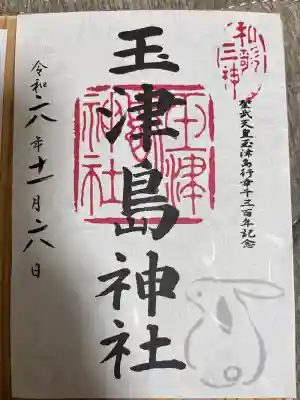 和歌
三神
聖武天皇玉津島行幸千三百年記念
玉津島神社
玉津
神社
令和六年十一月二八日